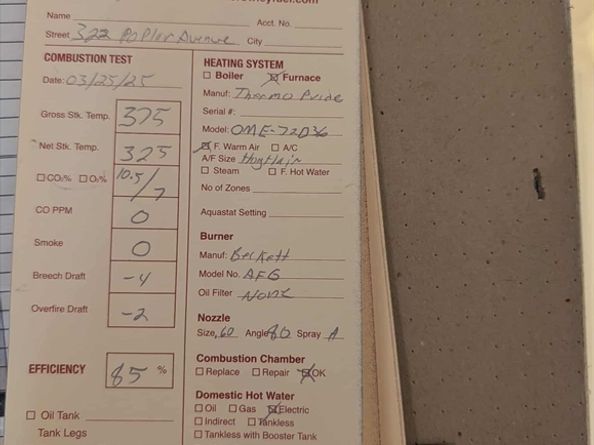 Name Acct. No.
Street 322 Poplar Avenue City
COMBUSTION TEST
Date: 03/25/25
Gross Stk. Temp. 375
Net Stk. Temp. 325
☐ CO₂% ☐ O₂% 10.5/7
CO PPM 0
Smoke 0
Breech Draft -4
Overfire Draft -2
EFFICIENCY 85 %
☐ Oil Tank
Tank Legs
HEATING SYSTEM
☐ Boiler ☒ Furnace
Manuf: Thermo Pride
Serial #:
Model: OME-72D36
☒ F. Warm Air ☐ A/C
A/F Size
☐ Steam ☐ F. Hot Water
No of Zones
Aquastat Setting
Burner
Manuf: Beckett
Model No. AFG
Oil Filter None
Nozzle
Size .60 Angle 80 Spray A
Combustion Chamber
☐ Replace ☐ Repair ☒ OK
Domestic Hot Water
☐ Oil ☐ Gas ☒ Electric
☐ Indirect ☐ Tankless
☐ Tankless with Booster Tank